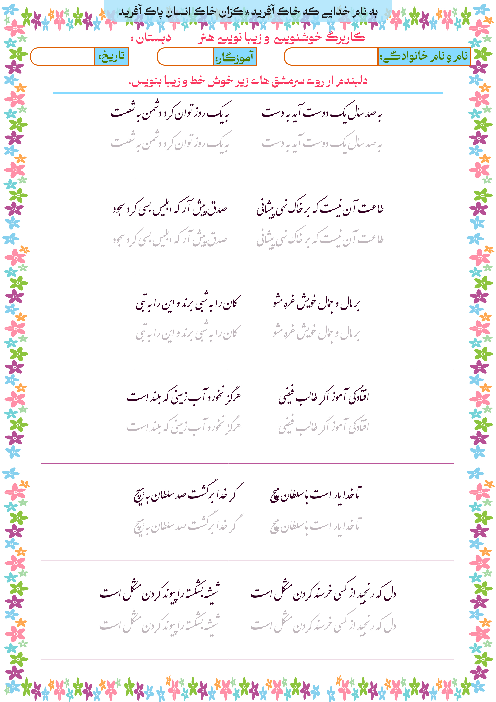 به نام خدایی که خاک آفرید * کزان خاک انسان پاک آفرید
کاربرگ خوشنویسی و زیبا نویسی هنر دبستان :
نام و نام خانوادگی: آموزگار: تاریخ:
دلبندم از روی سرمشق های زیر خوش خط و زیبا بنویس.
به صد سال یک دوست آید به دست به یک روز توان کرد دشمن به شصت
به صد سال یک دوست آید به دست به یک روز توان کرد دشمن به شصت
طاعت آن نیست که بر خاک نهی پیشانی صدق پیش آر که ابلیس بسی کرد سجود
طاعت آن نیست که بر خاک نهی پیشانی صدق پیش آر که ابلیس بسی کرد سجود
بر مال و جمال خویش غره مشو کان را به شبی برند و این را به تبی
بر مال و جمال خویش غره مشو کان را به شبی برند و این را به تبی
افتادگی آموز اگر طالب فیضی هرگز نخورد آب زمینی که بلند است
افتادگی آموز اگر طالب فیضی هرگز نخورد آب زمینی که بلند است
تا خدا یار است با سلطان مپیچ گر خدا برگشت صد سلطان به هیچ
تا خدا یار است با سلطان مپیچ گر خدا برگشت صد سلطان به هیچ
دل که رنجید از کسی خرسند کردن مشکل است شیشه بشکسته را پیوند کردن مشکل است
دل که رنجید از کسی خرسند کردن مشکل است شیشه بشکسته را پیوند کردن مشکل است